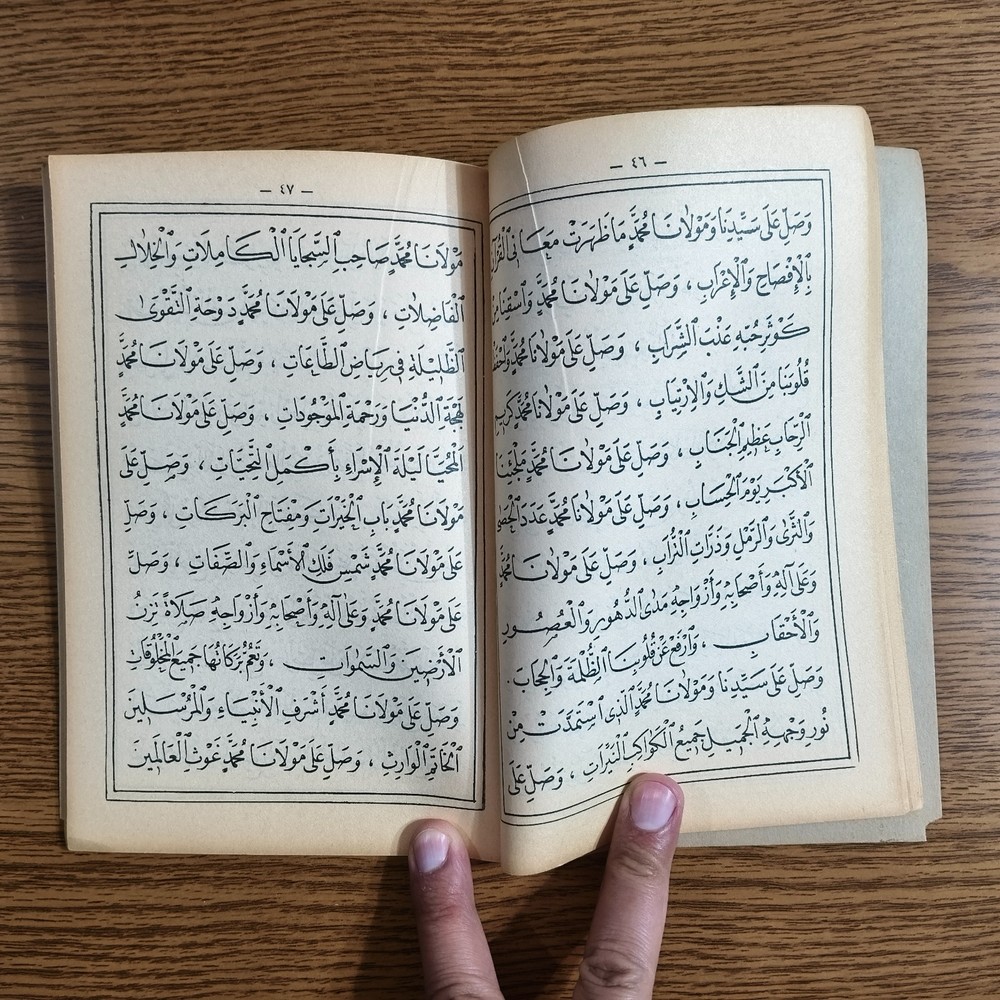 — ٤٦ —
وَصَلِّ عَلَى سَيِّدِنَا وَمَوْلَانَا مُحَمَّدٍ مَا ظَهَرَتْ مَعَانِى الْقُرْآنِ
بِالْإِفْصَاحِ وَالْإِعْرَابِ ، وَصَلِّ عَلَى مَوْلَانَا مُحَمَّدٍ وَاسْقِنَا مِنْ
كَوْثَرِ حُبِّهِ عَذْبَ الشَّرَابِ ، وَصَلِّ عَلَى مَوْلَانَا مُحَمَّدٍ وَاحْفَظْ
قُلُوبَنَا مِنَ الشَّكِّ وَالْاِرْتِيَابِ ، وَصَلِّ عَلَى مَوْلَانَا مُحَمَّدٍ كَرِيمِ
الرِّحَابِ عَظِيمِ الْجَنَابِ ، وَصَلِّ عَلَى مَوْلَانَا مُحَمَّدٍ مَلْجَئِنَا
الْأَكْبَرِ يَوْمَ الْحِسَابِ ، وَصَلِّ عَلَى مَوْلَانَا مُحَمَّدٍ عَدَدَ الْحَصَى
وَالثَّرَى وَالرَّمْلِ وَذَرَّاتِ التُّرَابِ ، وَصَلِّ عَلَى مَوْلَانَا مُحَمَّدٍ
وَعَلَى آلِهِ وَأَصْحَابِهِ وَأَزْوَاجِهِ مَدَى الدُّهُورِ وَالْعُصُورِ
وَالْأَحْقَابِ ، وَارْفَعْ عَنْ قُلُوبِنَا الظُّلْمَةَ وَالْحِجَابَ .
وَصَلِّ عَلَى سَيِّدِنَا وَمَوْلَانَا مُحَمَّدٍ الَّذِى اسْتَمَدَّتْ مِنْ
نُورِ وَجْهِهِ الْجَمِيلِ جَمِيعُ الْكَوَاكِبِ النَّيِّرَاتِ ، وَصَلِّ عَلَى
— ٤٧ —
مَوْلَانَا مُحَمَّدٍ صَاحِبِ السَّجَايَا الْكَامِلَاتِ وَالْخِلَالِ
الْفَاضِلَاتِ ، وَصَلِّ عَلَى مَوْلَانَا مُحَمَّدٍ دَوْحَةِ التَّقْوَى
الظَّلِيلَةِ فِى رِيَاضِ الطَّاعَاتِ ، وَصَلِّ عَلَى مَوْلَانَا مُحَمَّدٍ
بَهْجَةِ الدُّنْيَا وَرَحْمَةِ الْمَوْجُودَاتِ ، وَصَلِّ عَلَى مَوْلَانَا مُحَمَّدٍ
الْمُحَيَّا لَيْلَةَ الْإِسْرَاءِ بِأَكْمَلِ التَّحِيَّاتِ ، وَصَلِّ عَلَى
مَوْلَانَا مُحَمَّدٍ بَابِ الْخَيْرَاتِ وَمِفْتَاحِ الْبَرَكَاتِ ، وَصَلِّ
عَلَى مَوْلَانَا مُحَمَّدٍ شَمْسِ فَلَكِ الْأَسْمَاءِ وَالصِّفَاتِ ، وَصَلِّ
عَلَى مَوْلَانَا مُحَمَّدٍ وَعَلَى آلِهِ وَأَصْحَابِهِ وَأَزْوَاجِهِ صَلَاةً تَزِنُ
الْأَرَضِينَ وَالسَّمٰوَاتِ ، وَتَعُمُّ بَرَكَاتُهَا جَمِيعَ الْمَخْلُوقَاتِ
وَصَلِّ عَلَى مَوْلَانَا مُحَمَّدٍ أَشْرَفِ الْأَنْبِيَاءِ وَالْمُرْسَلِينَ
الْخَاتَمِ الْوَارِثِ ، وَصَلِّ عَلَى مَوْلَانَا مُحَمَّدٍ غَوْثِ الْعَالَمِينَ